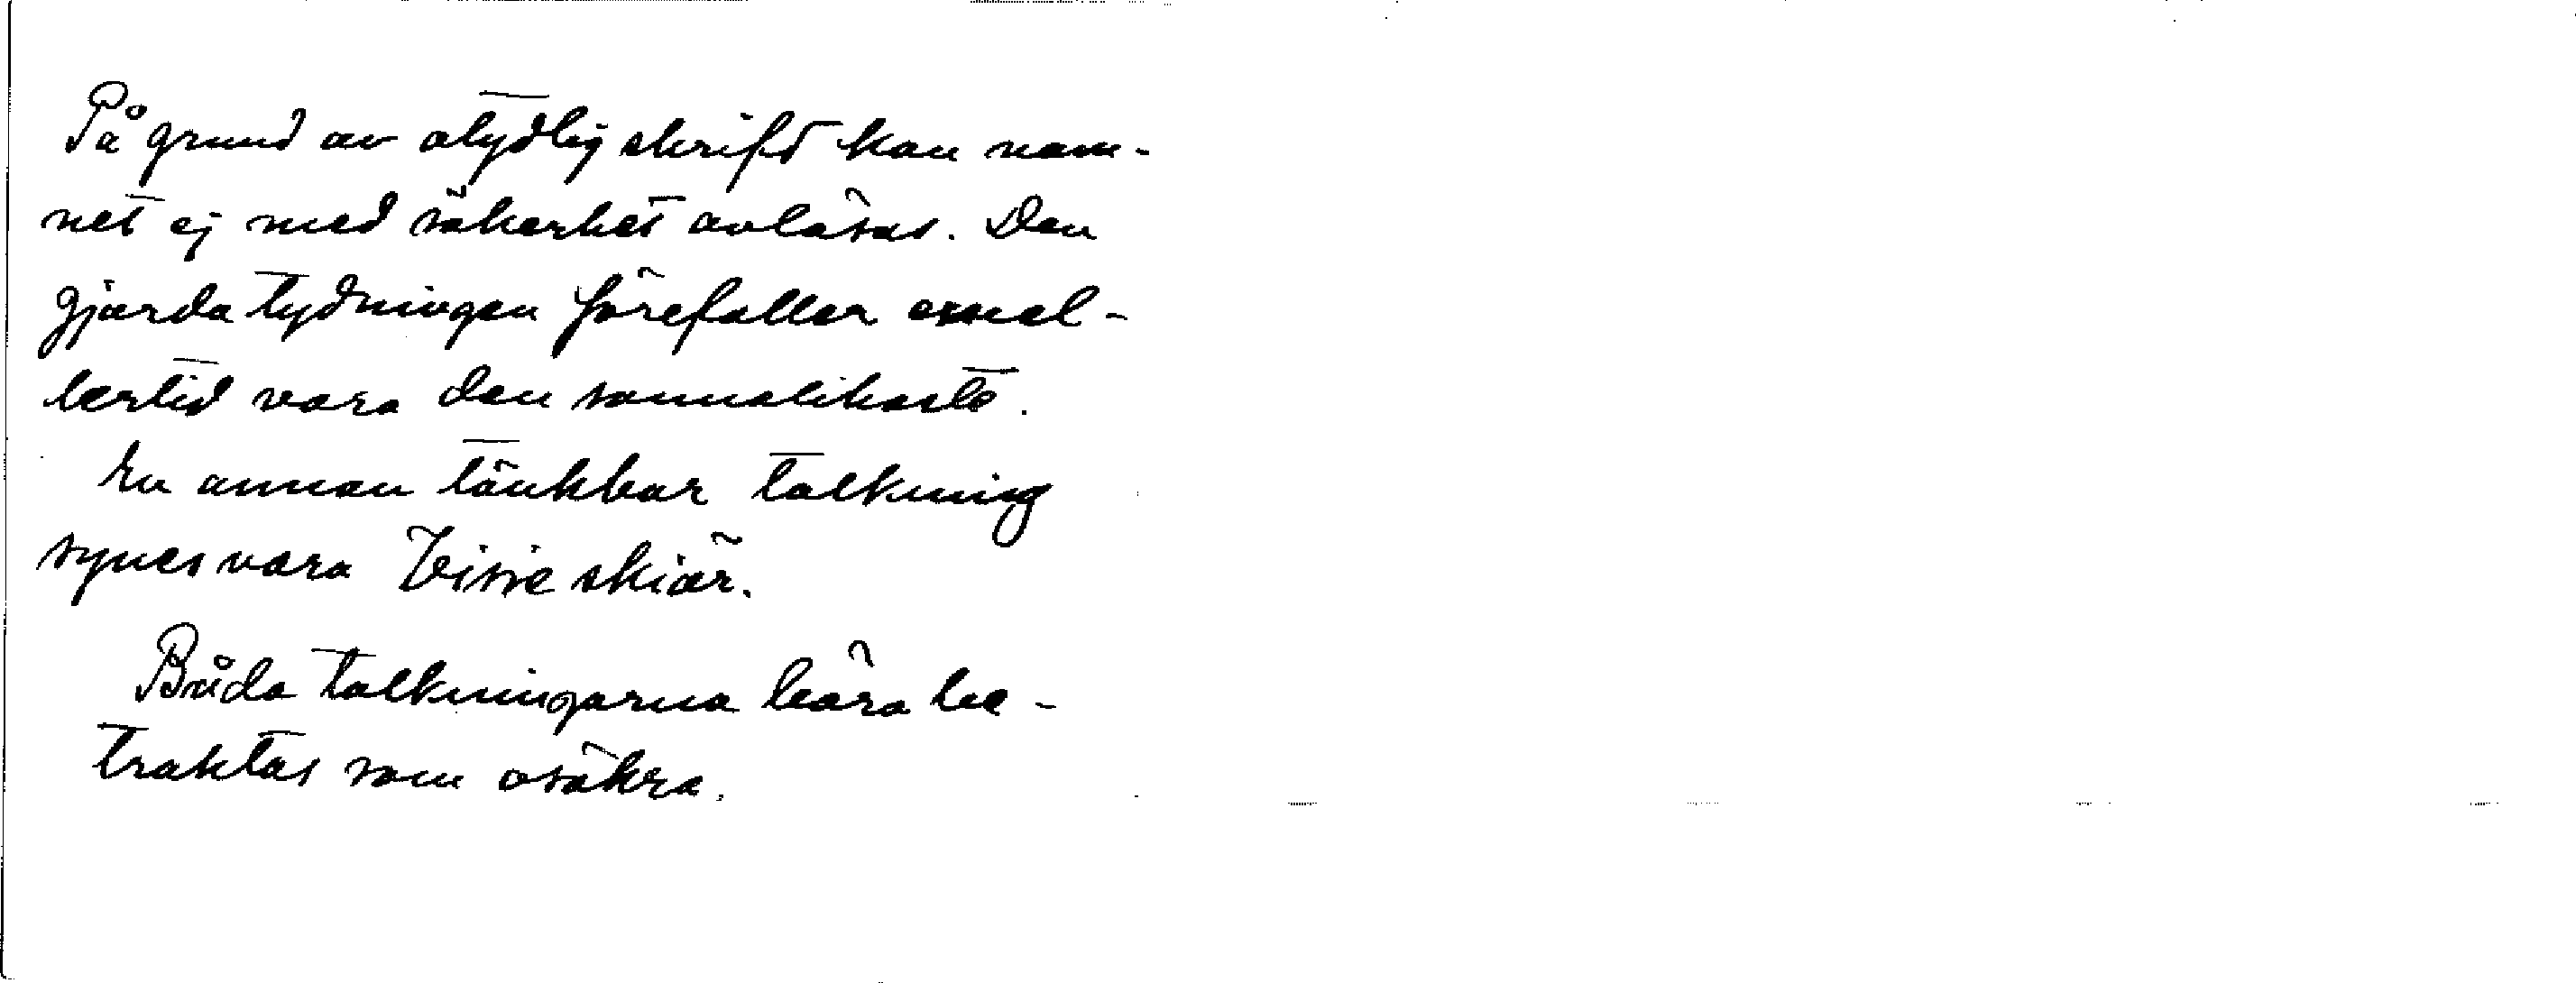 På grund av otydlig skrift kan nam-
net ej med säkerhet avläsas. Den
gjorda tydningen förefaller emel-
lertid vara den sannolikaste.
En annan tänkbar tolkning
synes vara skiär.
Båda tolkningarna böra be-
traktas som osäkra.